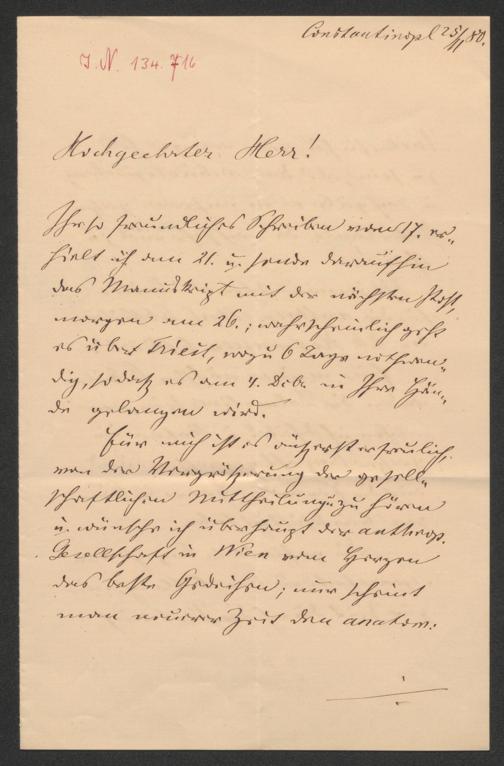 Constantinopl 25/11 80.
J. N. 134.716
Hochgeehrter Herr!
Ihr so freundliches Schreiben vom 17. er-
hielt ich am 21. u. sende daraufhin
das Manuskript mit der nächsten Post,
morgen am 26.; wahrscheinlich geht
es über Triest, wozu 6 Tage nothwen-
dig, so daß es am 4. Dcbr. in Ihre Hän-
de gelangen wird.
Für mich ist es äußerst erfreulich,
von der Vergrößerung der gesell-
schaftlichen Mittheilungen zu hören
u. wünsche ich überhaupt der anthrop.
Gesellschaft in Wien vom Herzen
das beste Gedeihen; nur scheint
man neuerer Zeit den anatom: